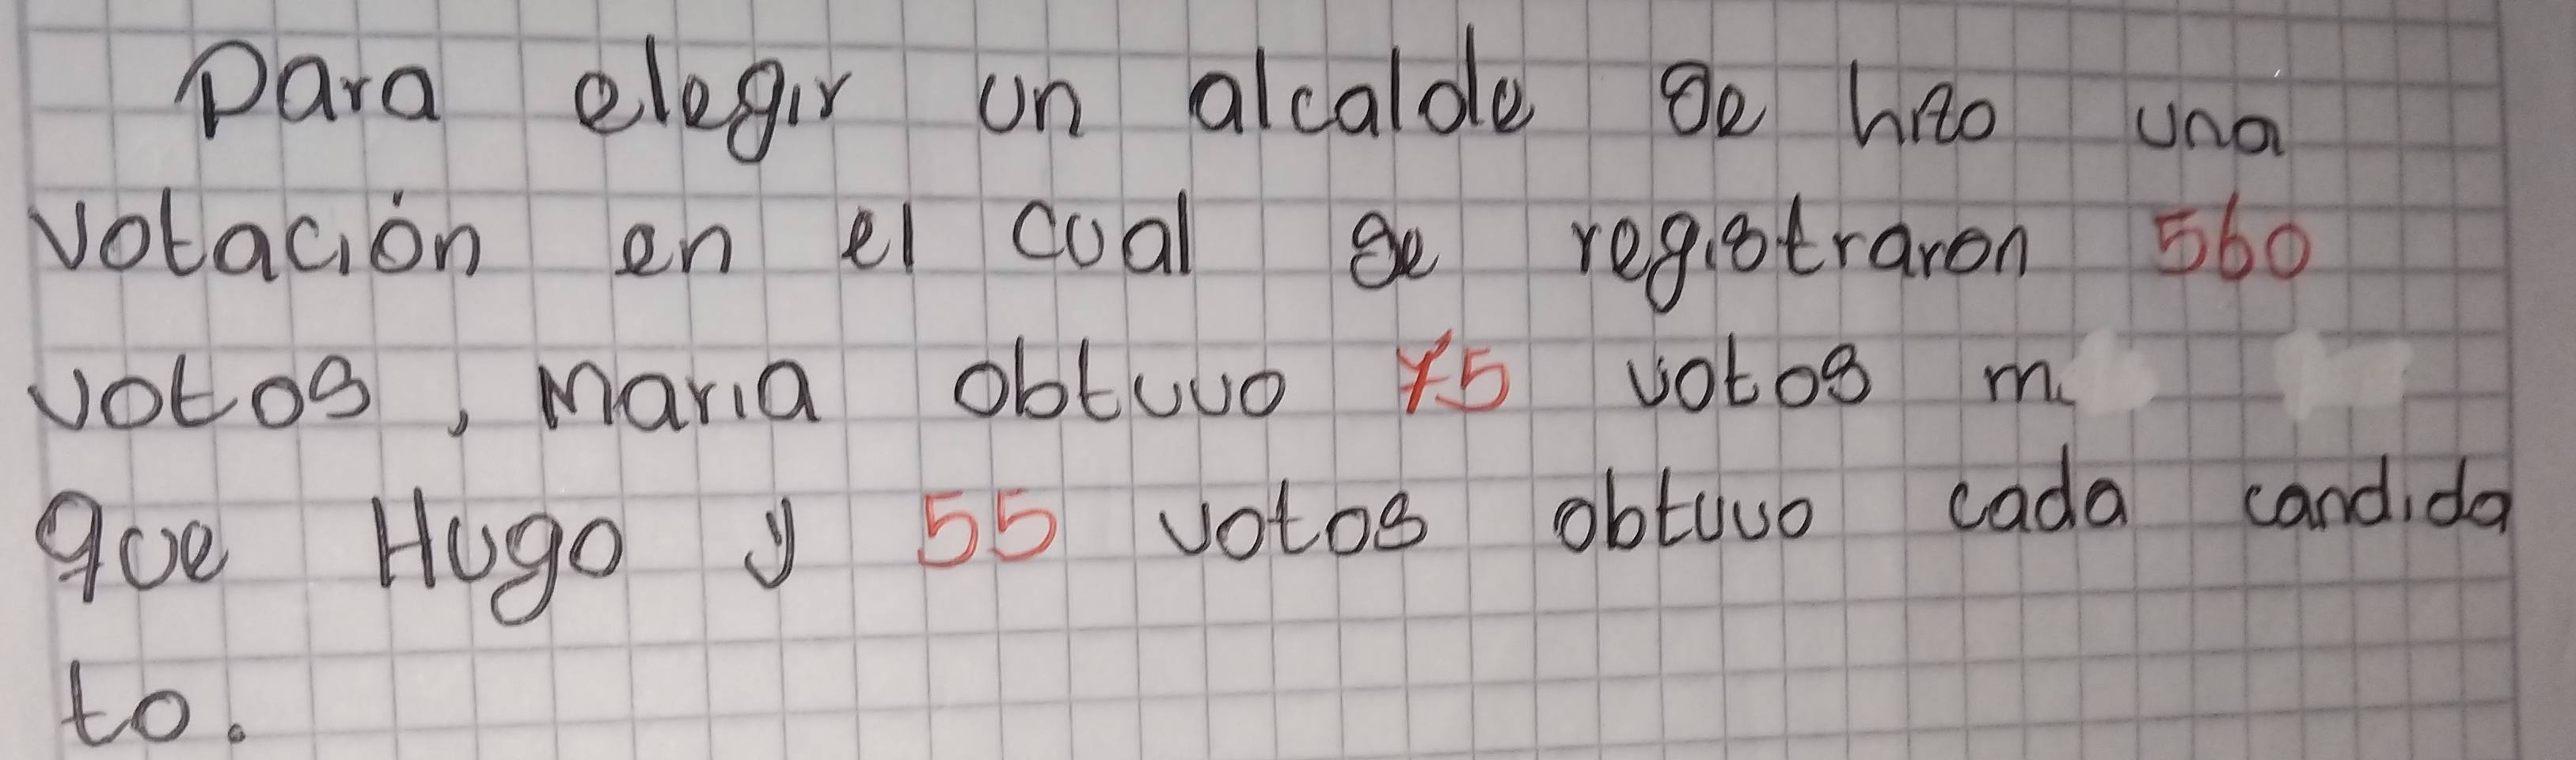 Para elegir un alcalde se hizo una
votación en el cual se registraron 560
votos, Maria obtuvo 75 votos
que Hugo y 55 votos obtuvo cada candida
to.